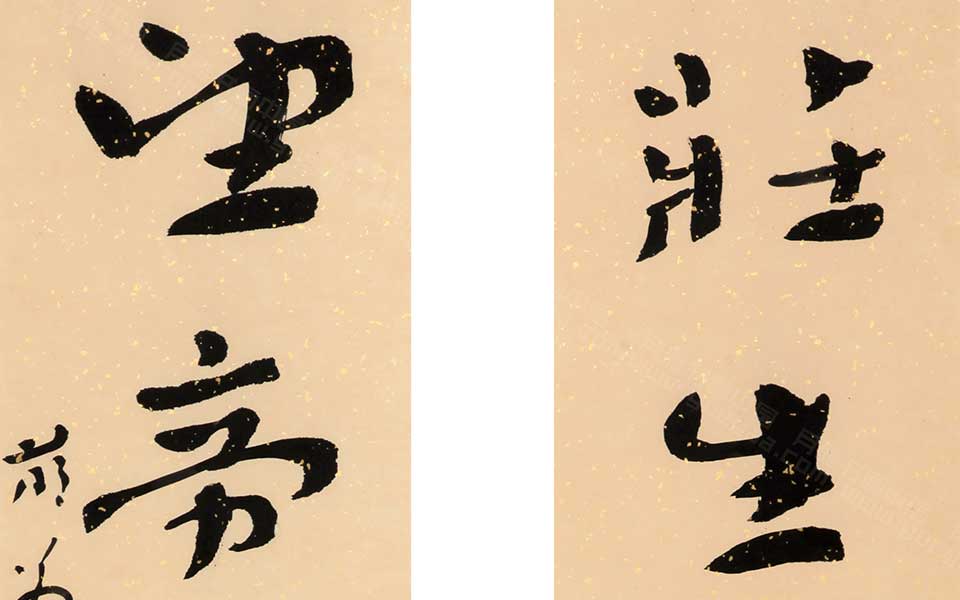 莊生
望帝